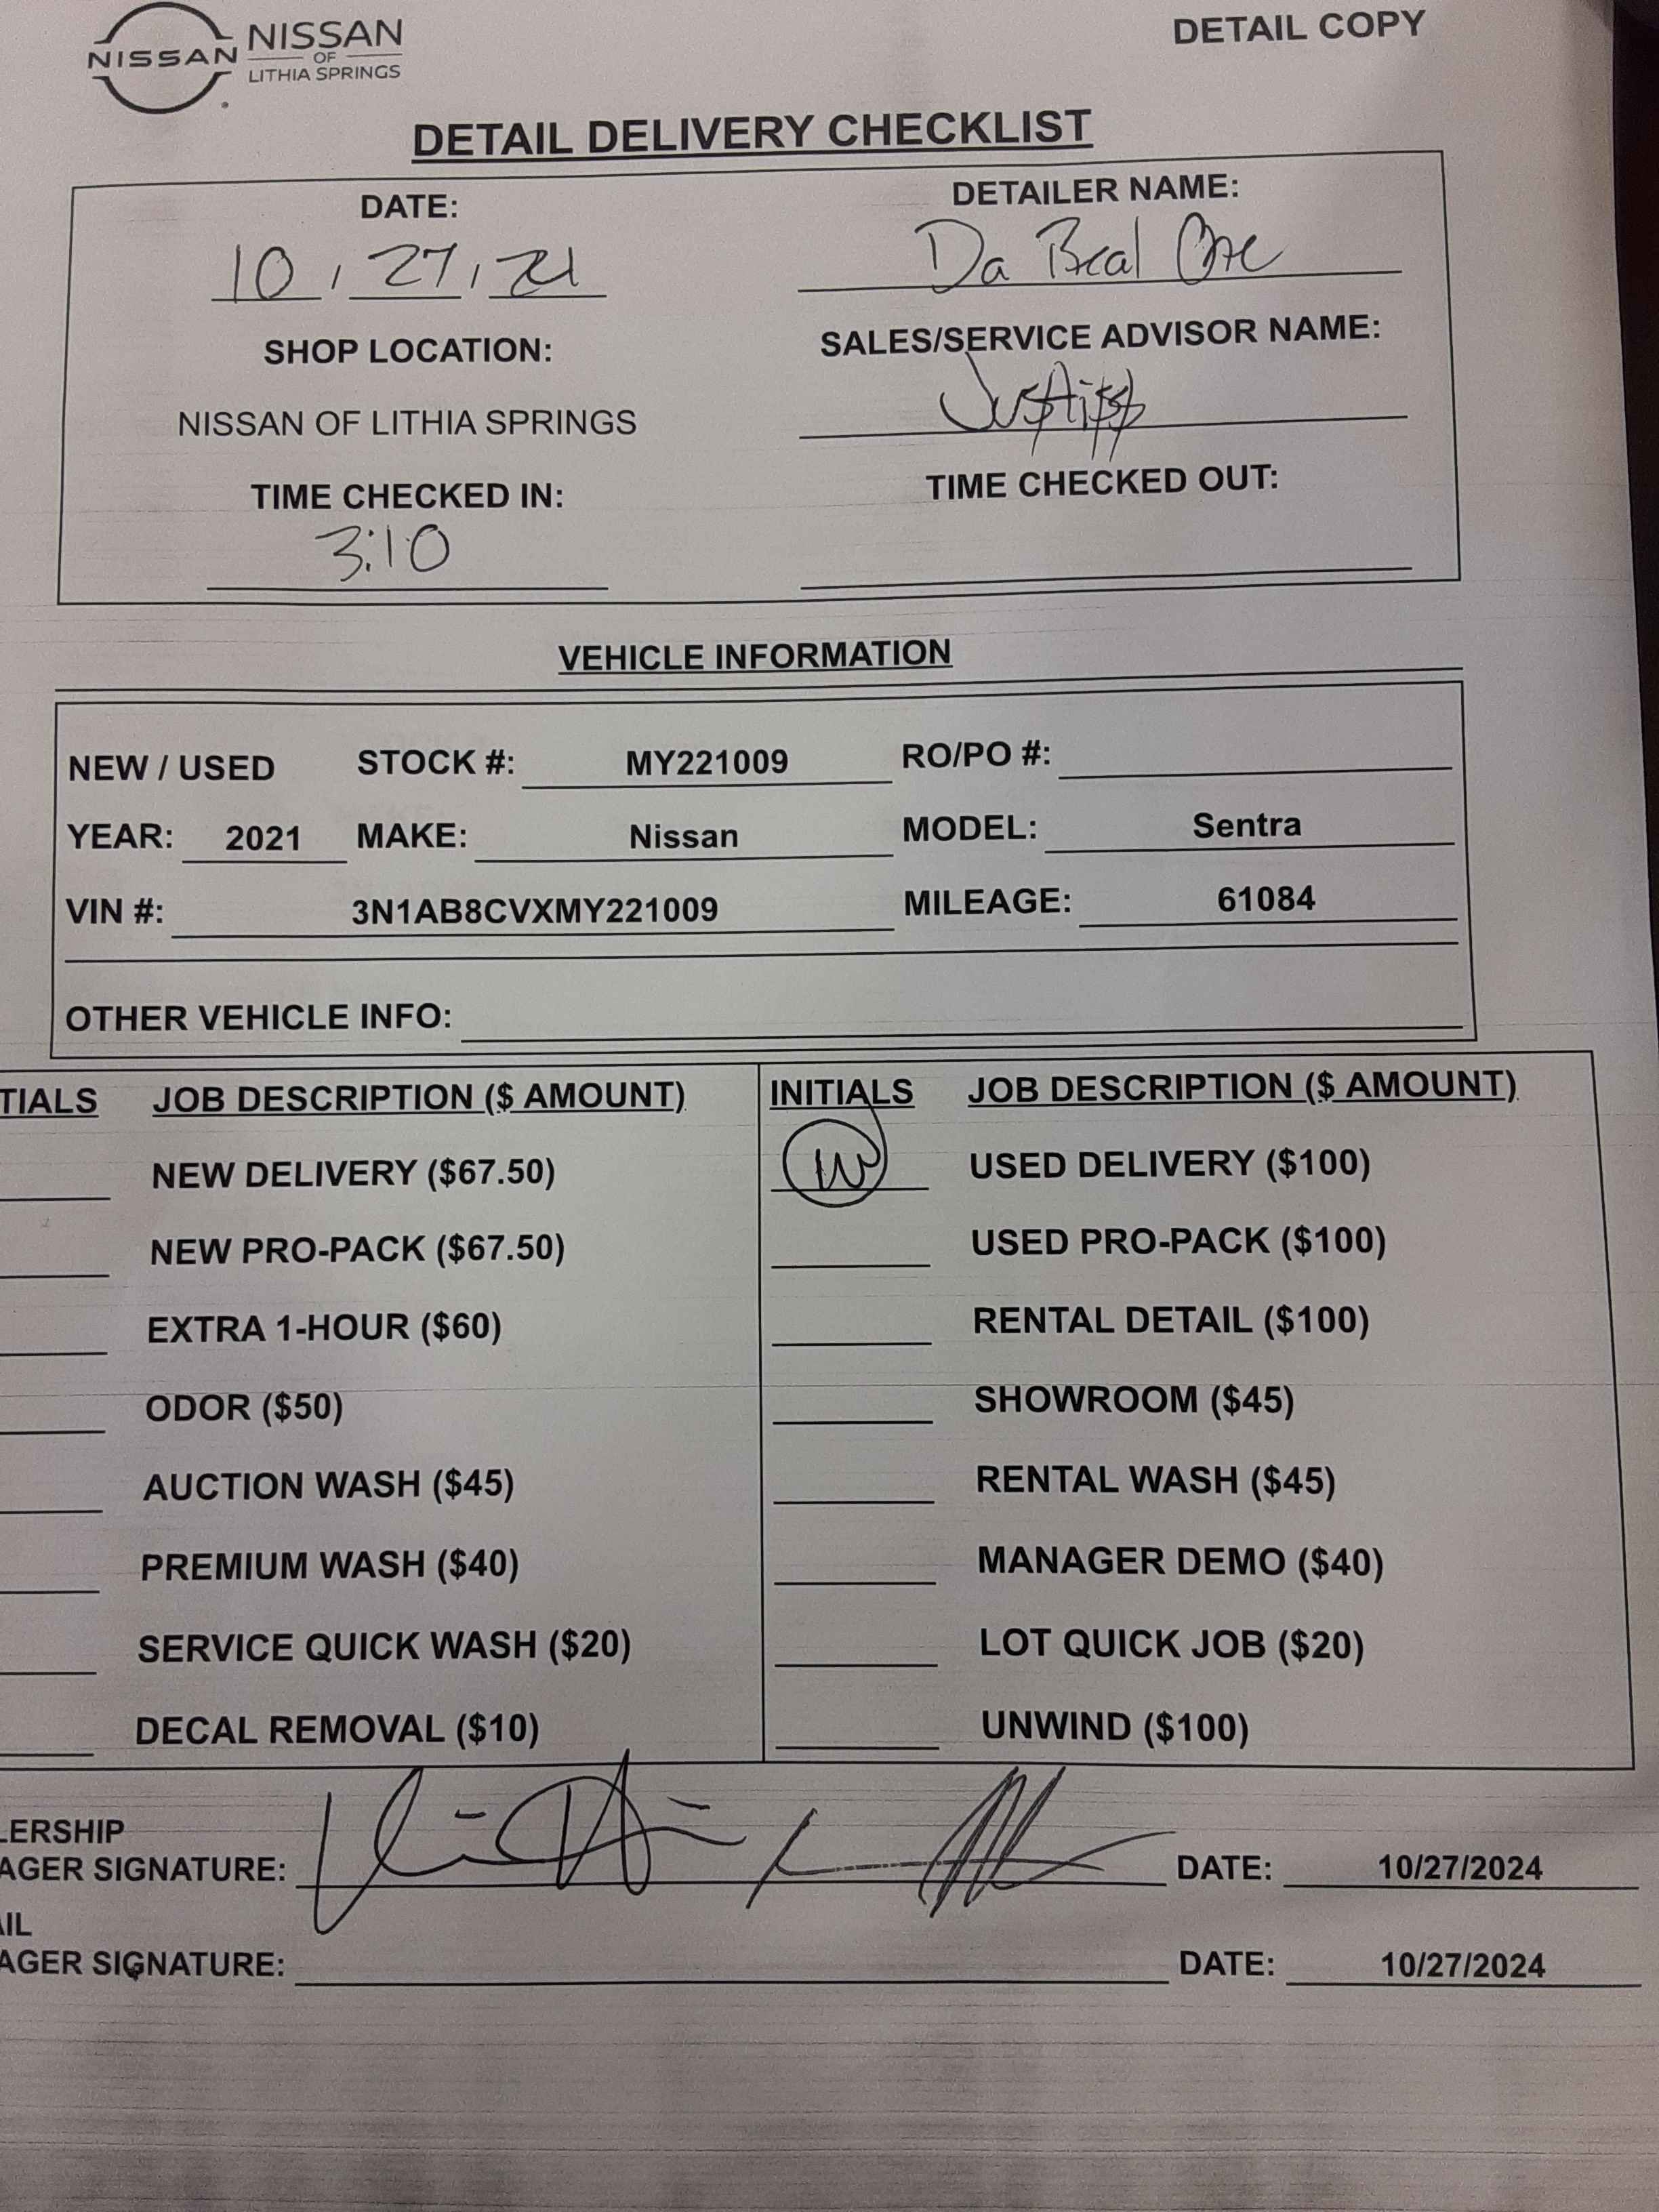 DETAIL COPY
NISSAN NISSAN
OF
LITHIA SPRINGS
DETAIL DELIVERY CHECKLIST
DATE: DETAILER NAME:
10 / 27 / 21 Da Real One
SHOP LOCATION: SALES/SERVICE ADVISOR NAME:
NISSAN OF LITHIA SPRINGS
TIME CHECKED IN: TIME CHECKED OUT:
3:10
VEHICLE INFORMATION
NEW / USED STOCK #: MY221009 RO/PO #:
YEAR: 2021 MAKE: Nissan MODEL: Sentra
VIN #: 3N1AB8CVXMY221009 MILEAGE: 61084
OTHER VEHICLE INFO:
TIALS JOB DESCRIPTION ($ AMOUNT) INITIALS JOB DESCRIPTION ($ AMOUNT)
NEW DELIVERY ($67.50) USED DELIVERY ($100)
NEW PRO-PACK ($67.50) USED PRO-PACK ($100)
EXTRA 1-HOUR ($60) RENTAL DETAIL ($100)
ODOR ($50) SHOWROOM ($45)
AUCTION WASH ($45) RENTAL WASH ($45)
PREMIUM WASH ($40) MANAGER DEMO ($40)
SERVICE QUICK WASH ($20) LOT QUICK JOB ($20)
DECAL REMOVAL ($10) UNWIND ($100)
LERSHIP
AGER SIGNATURE: DATE: 10/27/2024
AIL
AGER SIGNATURE: DATE: 10/27/2024